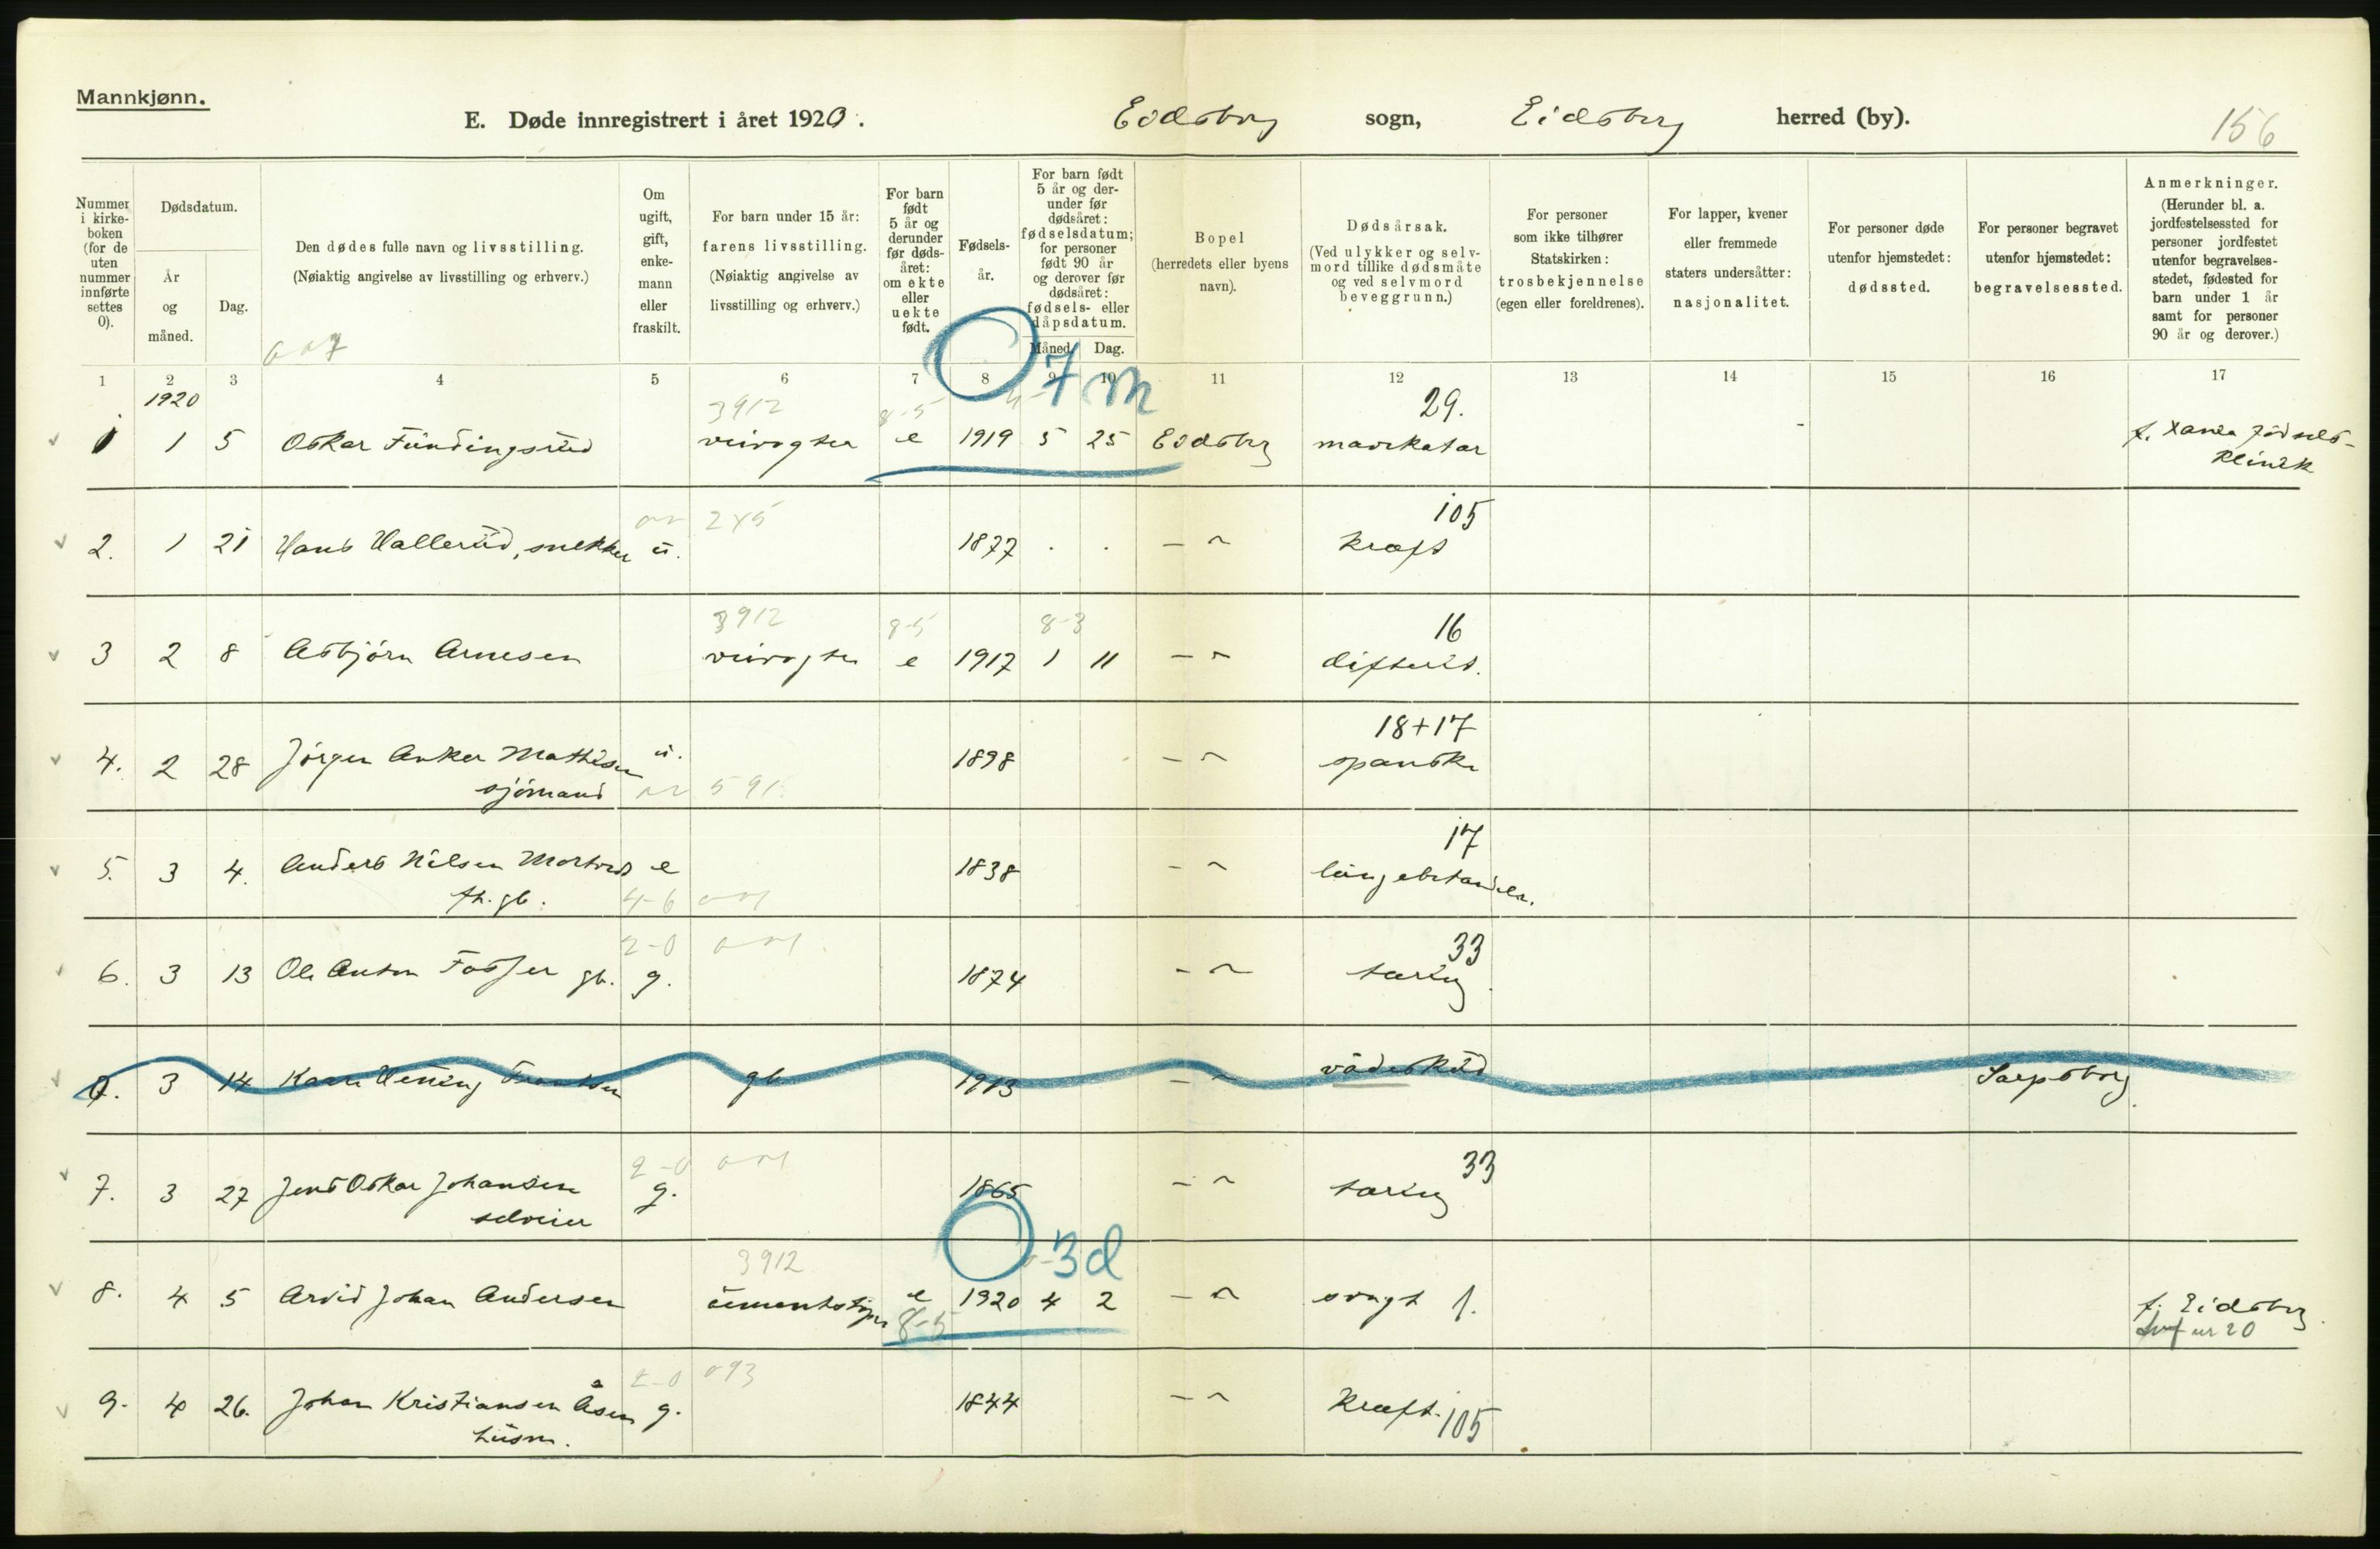 Mannkjønn.
E. Døde innregistrert i året 1920. Eidsberg sogn, Eidsberg herred (by). 156
Nummer i kirke-boken (for de uten nummer innførte settes 0).
Dødsdatum.
År og måned.
Dag.
Den dødes fulle navn og livsstilling.
(Nøiaktig angivelse av livsstilling og erhverv.)
Om ugift, gift, enke-mann eller fraskilt.
For barn under 15 år: farens livsstilling. (Nøiaktig angivelse av livsstilling og erhverv.)
For barn født 5 år og derunder før døds-året: om ekte eller uekte født.
Fødsels-år.
For barn født 5 år og der-under før dødsåret: fødselsdatum; for personer født 90 år og derover før dødsåret: fødsels- eller dåpsdatum.
Måned. Dag.
Bopel (herredets eller byens navn).
Dødsårsak. (Ved ulykker og selv-mord tillike dødsmåte og ved selvmord beveggrunn.)
For personer som ikke tilhører Statskirken: trosbekjennelse (egen eller foreldrenes).
For lapper, kvener eller fremmede staters undersåtter: nasjonalitet.
For personer døde utenfor hjemstedet: dødssted.
For personer begravet utenfor hjemstedet: begravelsessted.
Anmerkninger. (Herunder bl. a. jordfestelsessted for personer jordfestet utenfor begravelses-stedet, fødested for barn under 1 år samt for personer 90 år og derover.)
1 2 3 4 5 6 7 8 9 10 11 12 13 14 15 16 17
1920 3912 8-5 0 7 m 29.
1 1 5 Oskar Fundingsrud veivogter e 1919 5 25 Eidsberg mavekatar f. fødsels-
klinik
245 105
2. 1 21 Hans Hallerud, snekker u. 1877 . . - " - kræft
3912 8-5 8-3 16
3 2 8 Asbjørn Arnesen veivogter e 1917 1 11 - " - difterit.
18+17
4. 2 28 Jørgen Anker Mathisen u. 1898 - " - spanske
sjømand 591
17
5. 3 4. Anders Nilsen e 1838 - " - lungebetændelse.
fh. gb. 4-6
2-0 33
6. 3 13 Ole Anton Fosser gb. g. 1874 - " - tæring
0. 3 14 Kaare gb 1913 - " - vådeskud Sarpsborg.
2-0 33
7. 3 27 Jens Oskar Johansen g. 1865 - " - tæring
selveier
3912 0 3d
8. 4 5 Arvid Johan Andersen e 1920 4 2 - " - svagt f. f. Eidsberg
8-5 nr 20
2-0 093
9. 4 26. Johan Kristiansen Åsen g. 1844 - " - Kræft. 105
husm.